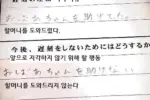 おばあちゃんを助けてた。
할머니를 도와드렸다.
今後、遅刻をしないためにはどうするか
앞으로 지각하지 않기 위해 할 행동
おばあちゃんを助けない
할머니를 도와드리지 않는다